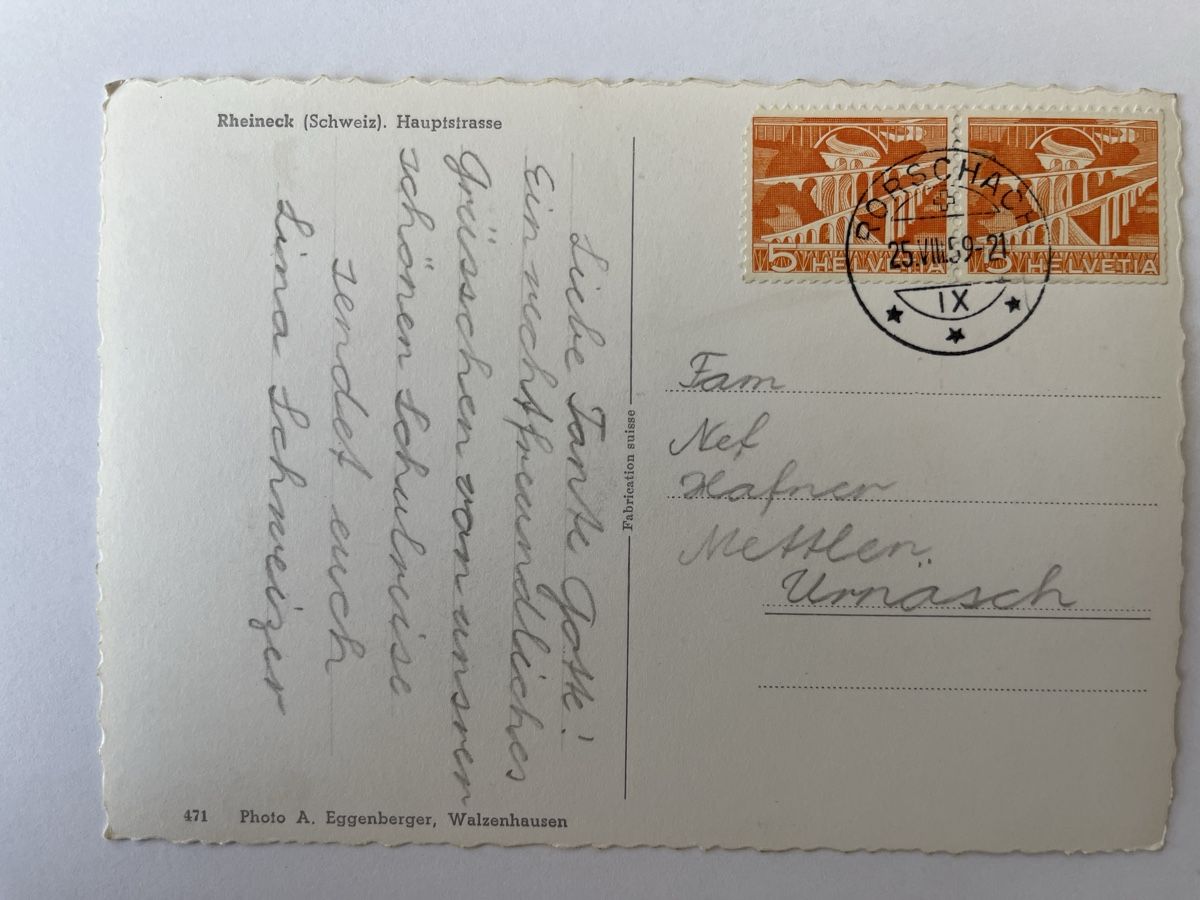 Rheineck (Schweiz). Hauptstrasse
Liebe Tante Gotte!
Ein rechtfreundliches
Grüsschen von unsrer
schönen Schulreise
sendet euch
Lina Schweizer
471 Photo A. Eggenberger, Walzenhausen
Fabrication suisse
5 HELVETIA
5 HELVETIA
RORSCHACH
25.VIII.59-21
IX
Fam
Nef
Hafner
Mettlen
Urnäsch